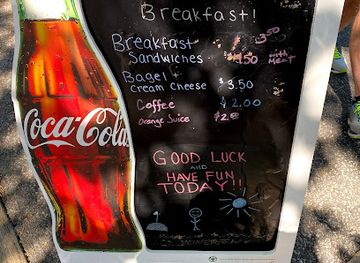 Breakfast!
Breakfast $3.50
Sandwiches $4.50 with MEAT
Bagel +
cream cheese $3.50
Coffee $2.00
Orange Juice
GOOD LUCK
AND
HAVE FUN
TODAY!!
Coca-Cola